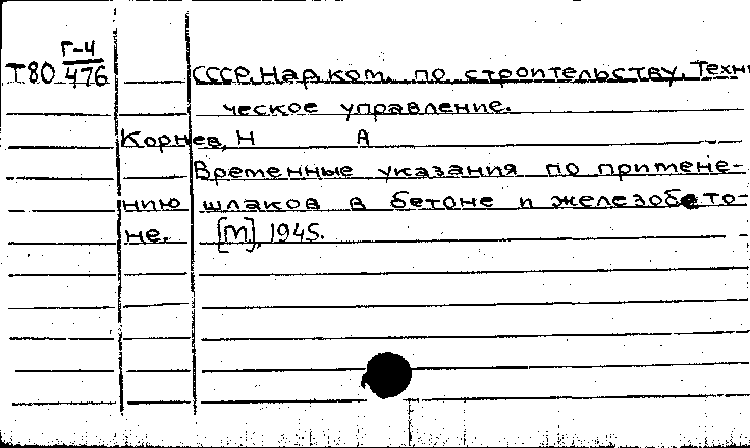 Г-4
Т80 476 СССР. Нар. ком. по строительству. Техни
ческое управление.
Корнев, Н А
Временные указания по примене-
нию шлаков в бетоне и железобето-
не. [М.], 1945.